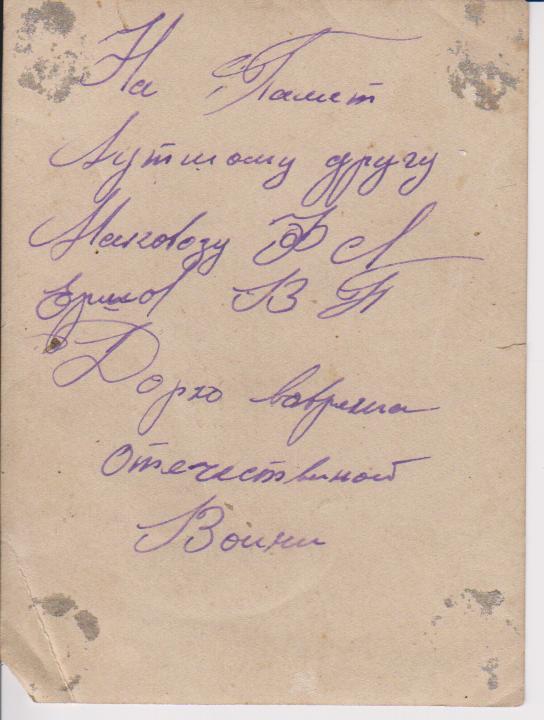 На Памет
Лутшому другу
Малговозу Ф Л
Ершов В П
Дорю вовремиа
Отечествиной
Воини